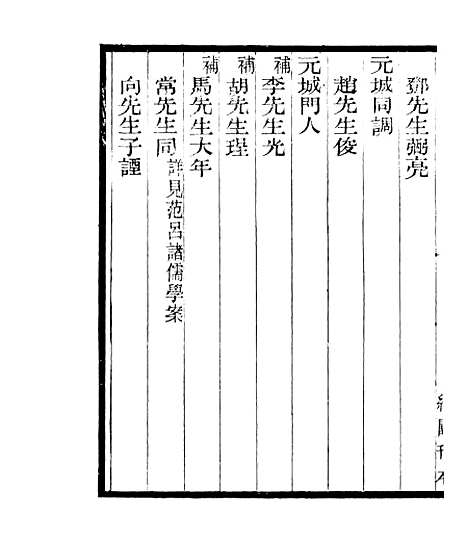 鄧先生弼亮
元城同調
趙先生俊
元城門人
補李先生光
補胡先生珵
補馬先生大年
常先生同詳見范呂諸儒學案
向先生子諲